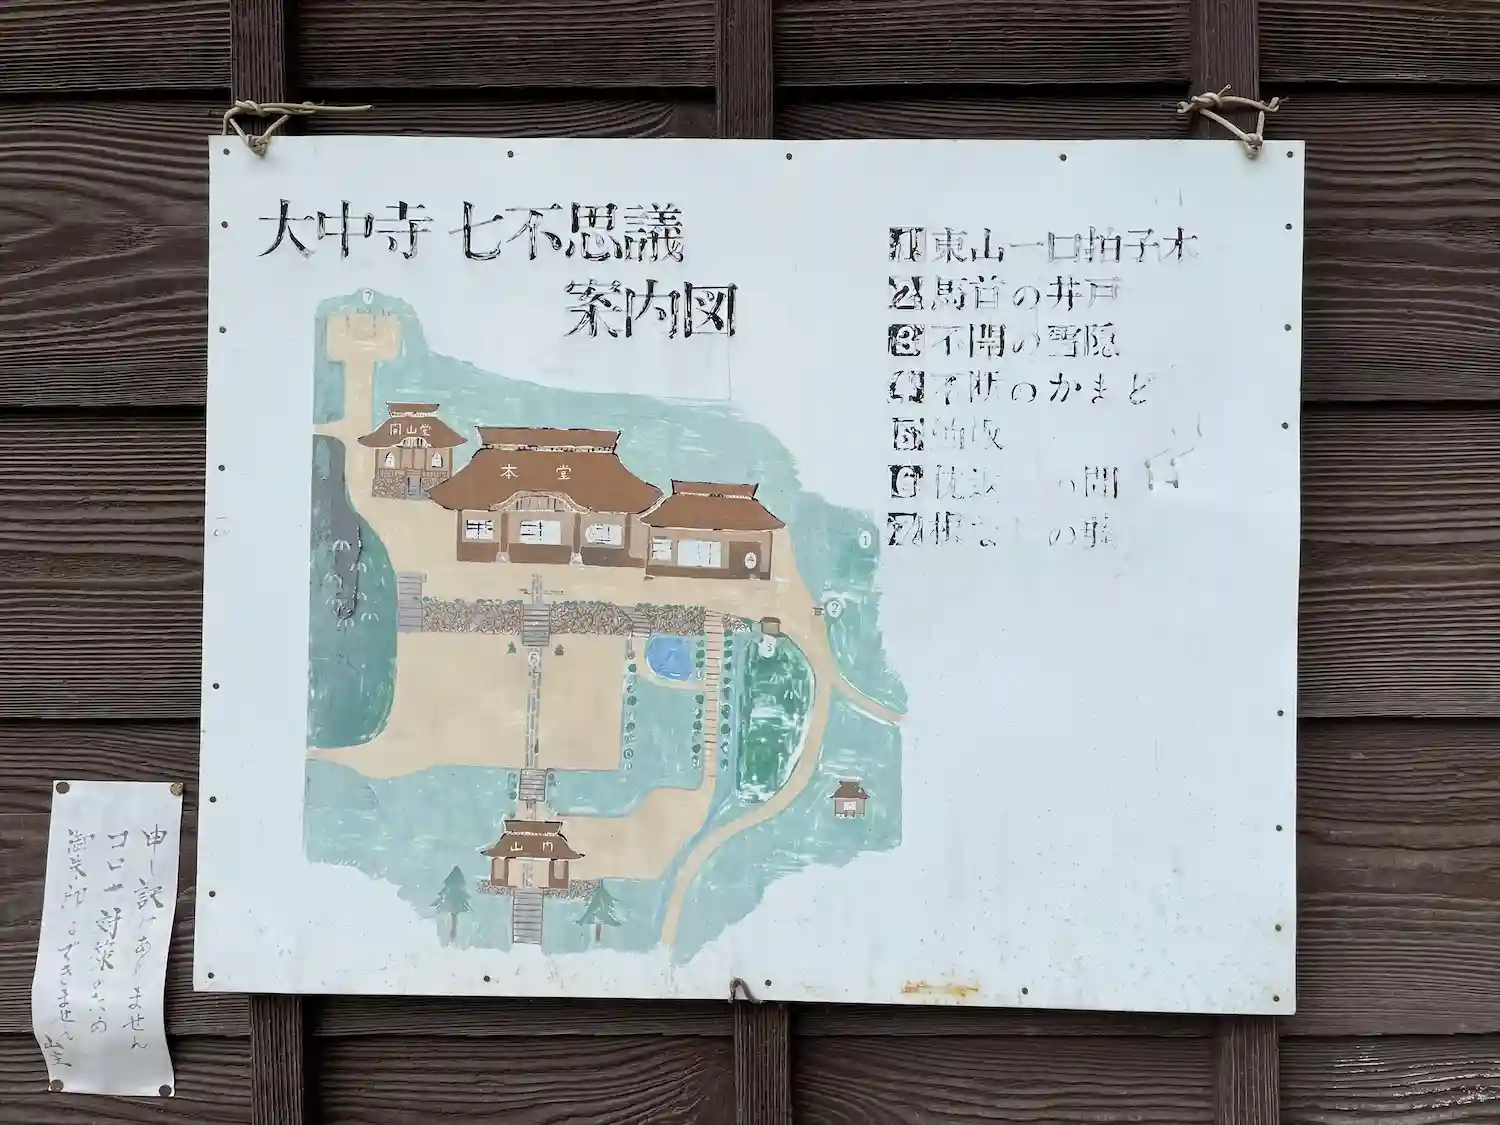 大中寺 七不思議
案内図
1 東山一口拍子木
2 馬首の井戸
3 不開の雪隠
4 不断のかまど
5 油坂
6 枕返の間
7 根なしの藤
7
開山堂
本堂
1
4
2
3
6
山内
申し訳ありません
コロナ対策のため
御朱印はできません
山主